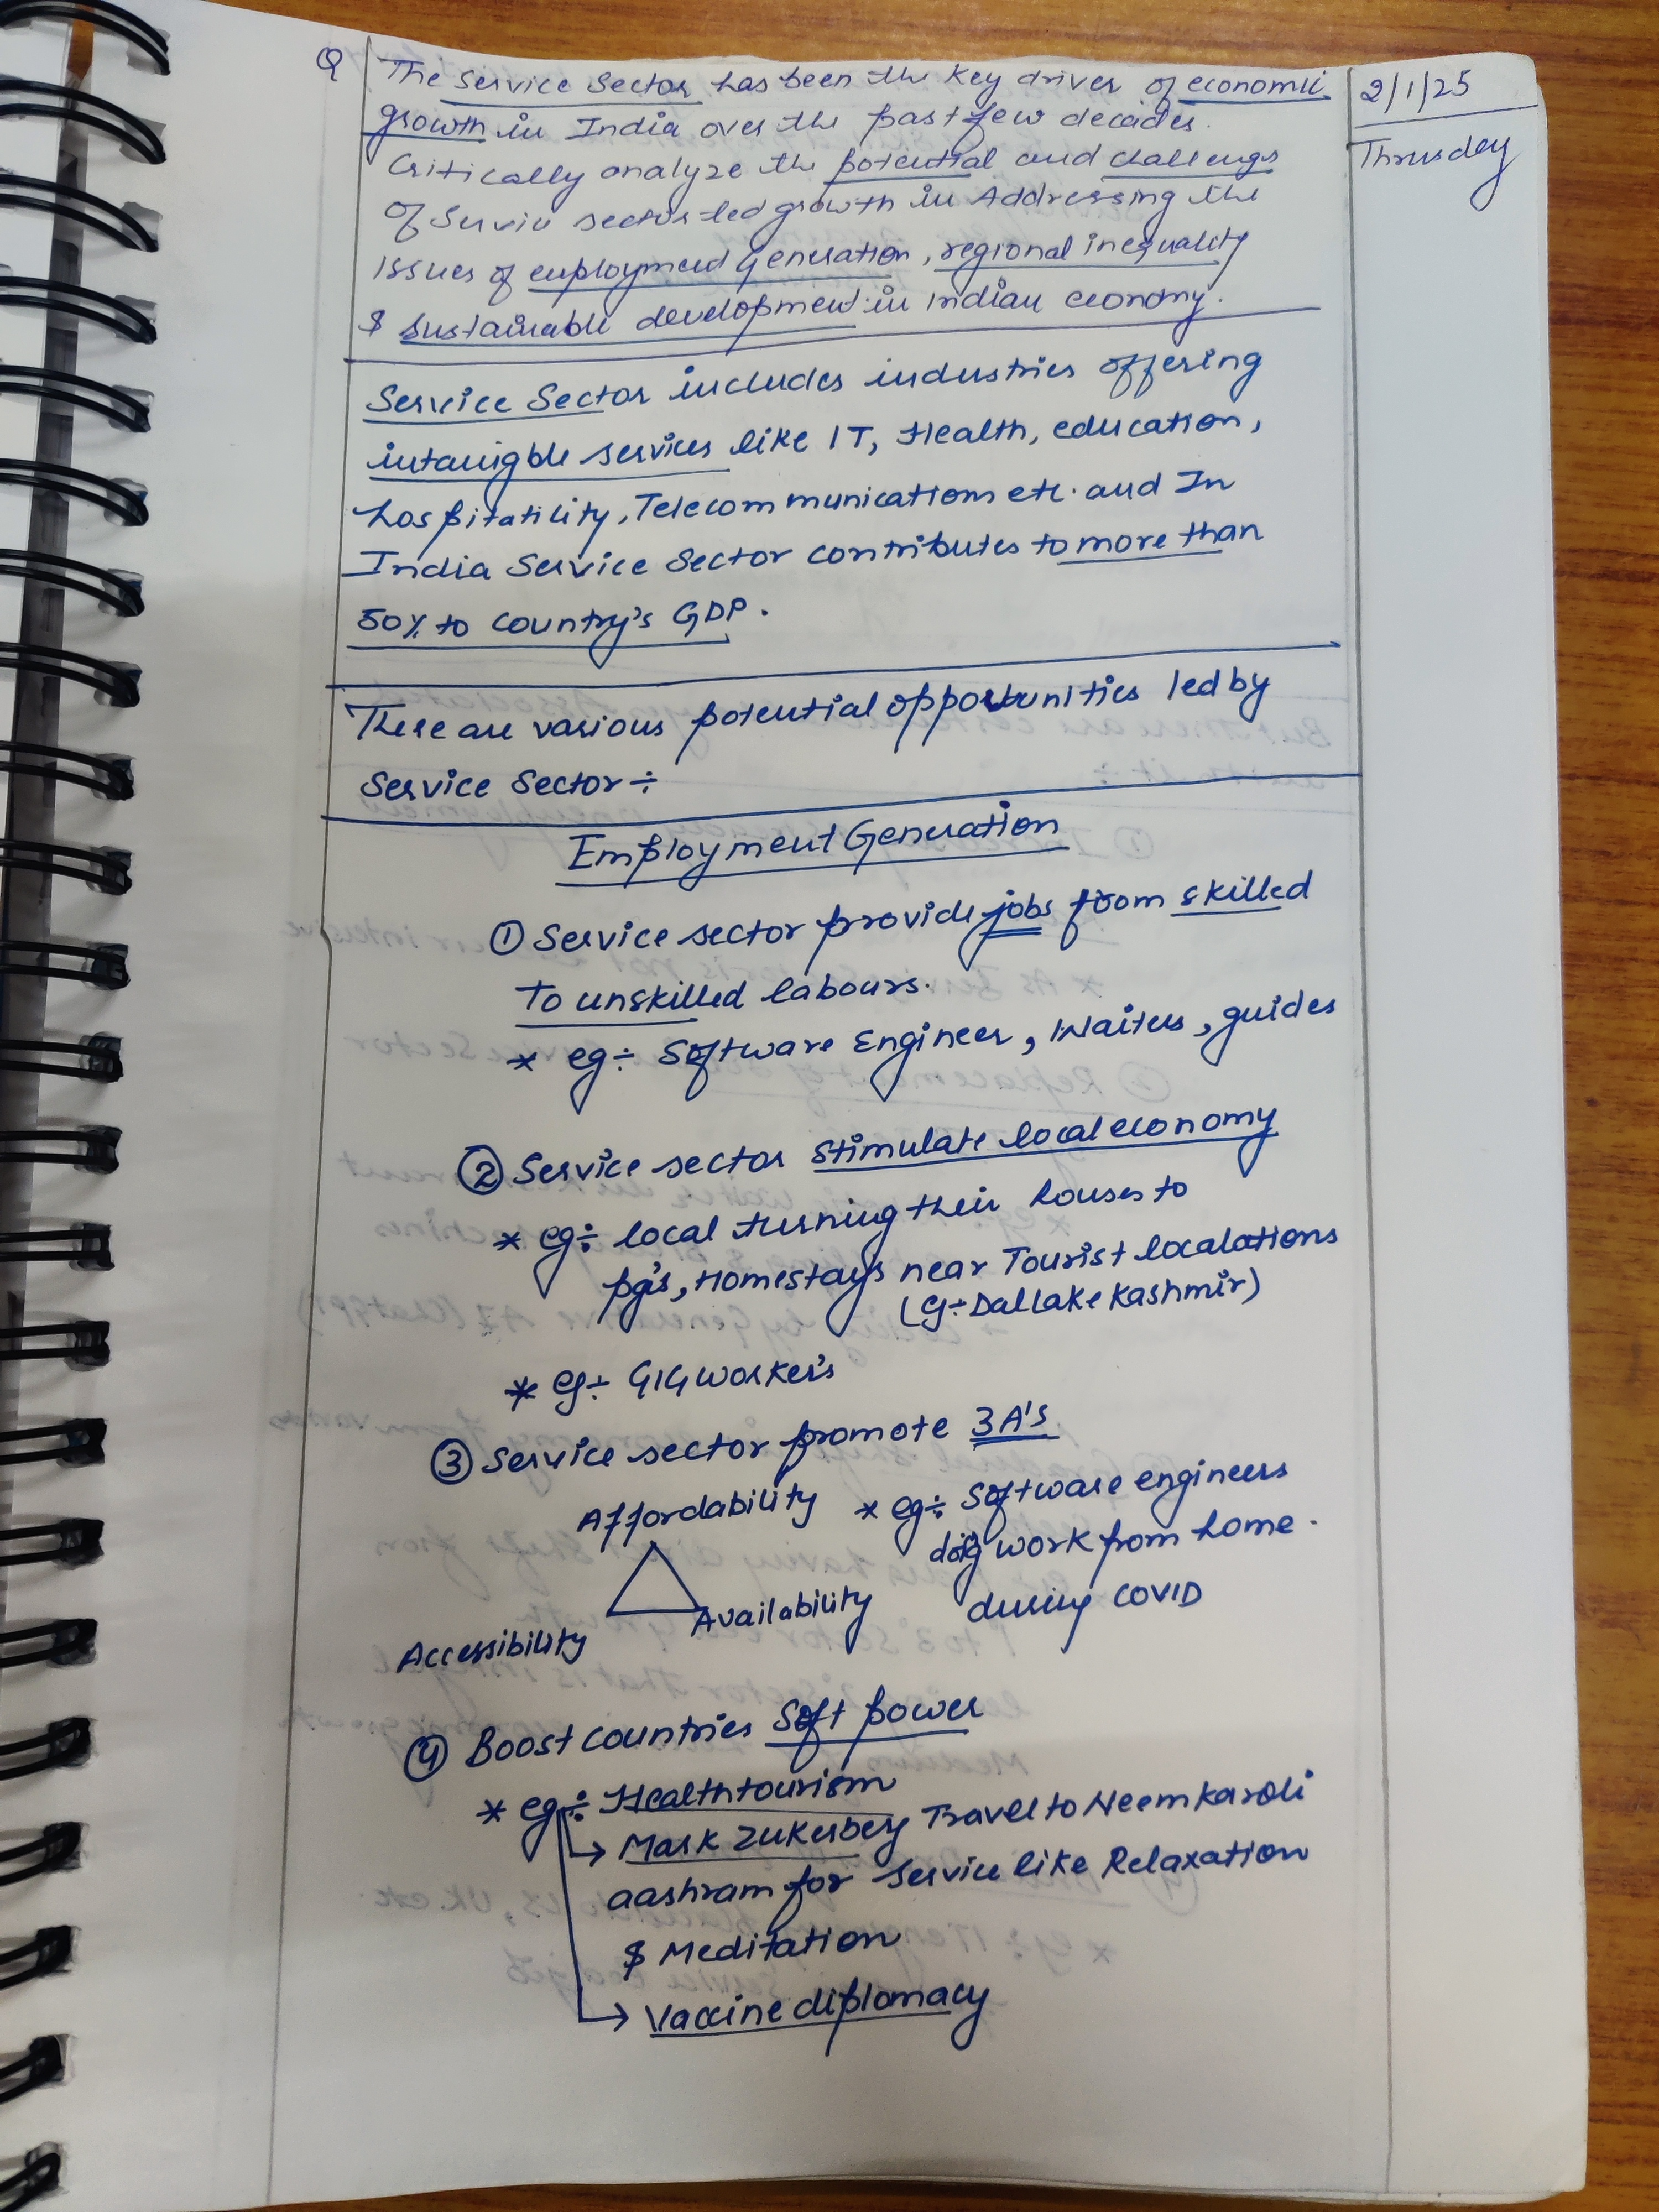 Q
The Service Sector has been the key driver of economic
growth in India over the past few decades.
Critically analyze the potential and challengs
of Servic sector led growth in Addressing the
issues of employment generation, regional inequality
$ sustainable development in Indian economy.
2/1/25
Thrusday
Service Sector includes industries offering
intanigble services like IT, Health, education,
hospitatility, Telecommunications etc. and In
India Service Sector contributes to more than
50% to country's GDP.
There are various potential opportunities led by
Service Sector ÷
Employment Generation
① Service sector provide jobs from skilled
To unskilled labours.
* eg ÷ Software Engineer, Waiters, guides
② Service sector stimulate local economy
* eg ÷ local turning their houses to
pg's, Homestays near Tourist localations
(eg ÷ Dal Lake Kashmir)
* eg ÷ GIG worker's
③ Service sector promote 3 A's
Affordability
* eg ÷ Software engineers
doig work from home.
during COVID
Availability
Accessibility
④ Boost countries Soft power
* eg ÷ Health tourism
→ Mark Zukerberg Travel to Neem karoli
aashram for service like Relaxation
$ Meditation
→ Vaccine diplomacy